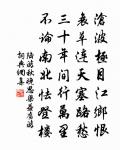 滄波極目江鄉恨
衰草連天塞路愁
三十年間行萬里
不論南北怯登樓
陸游秋晚思梁益舊游
詞典網集